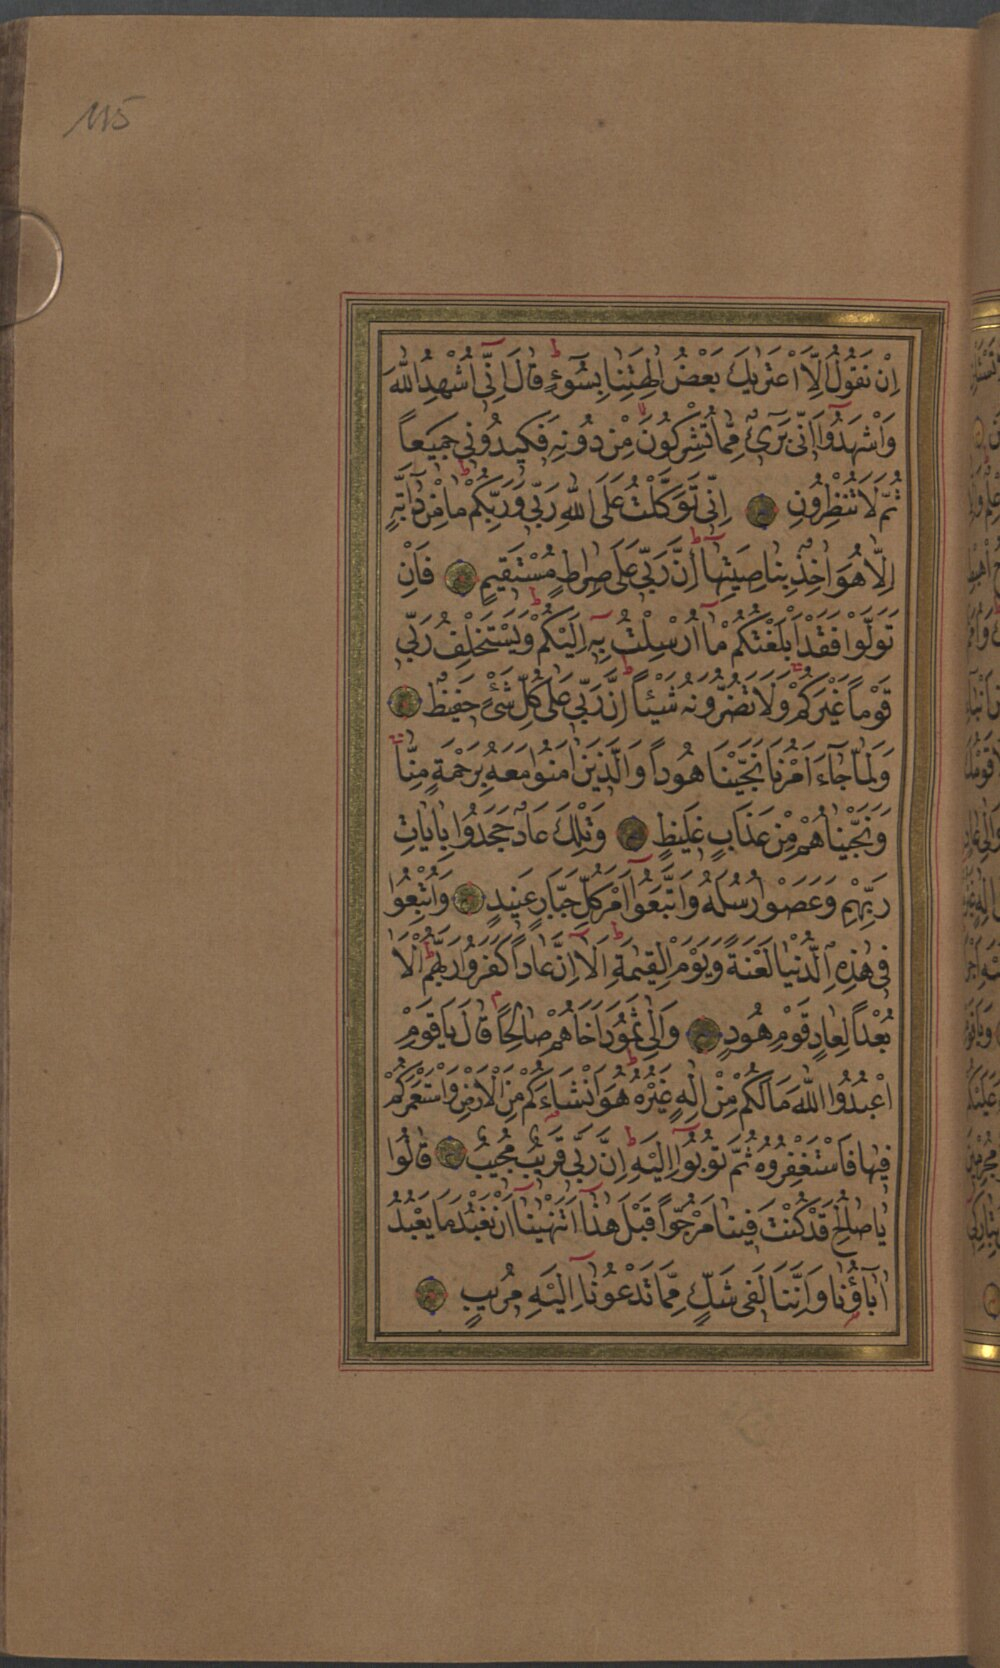 115
اِنْ نَقُولُ اِلَّا اعْتَرٰيكَ بَعْضُ اٰلِهَتِنَا بِسُٓوءٍ قَالَ اِنّٓى اُشْهِدُ اللّٰهَ
وَاشْهَدُٓوا اَنّٖى بَرٓىءٌ مِمَّا تُشْرِكُونَ مِنْ دُونِهٖ فَكٖيدُونٖى جَمٖيعاً
ثُمَّ لَا تُنْظِرُونِ اِنّٖى تَوَكَّلْتُ عَلَى اللّٰهِ رَبّٖى وَرَبِّكُمْ مَا مِنْ دَٓابَّةٍ
اِلَّا هُوَ اٰخِذٌ بِنَاصِيَتِهَا اِنَّ رَبّٖى عَلٰى صِرَاطٍ مُسْتَقٖيمٍ فَاِنْ
تَوَلَّوْا فَقَدْ اَبْلَغْتُكُمْ مَٓا اُرْسِلْتُ بِهٖٓ اِلَيْكُمْ وَيَسْتَخْلِفُ رَبّٖى
قَوْماً غَيْرَكُمْ وَلَا تَضُرُّونَهُ شَيْـٔاً اِنَّ رَبّٖى عَلٰى كُلِّ شَىْءٍ حَفٖيظٌ
وَلَمَّا جَٓاءَ اَمْرُنَا نَجَّيْنَا هُوداً وَالَّذٖينَ اٰمَنُوا مَعَهُ بِرَحْمَةٍ مِنَّا
وَنَجَّيْنَاهُمْ مِنْ عَذَابٍ غَلٖيظٍ وَتِلْكَ عَادٌ جَحَدُوا بِاٰيَاتِ
رَبِّهِمْ وَعَصَوْا رُسُلَهُ وَاتَّبَعُٓوا اَمْرَ كُلِّ جَبَّارٍ عَنٖيدٍ وَاُتْبِعُوا
فٖى هٰذِهِ الدُّنْيَا لَعْنَةً وَيَوْمَ الْقِيٰمَةِ اَلَٓا اِنَّ عَاداً كَفَرُوا رَبَّهُمْ اَلَا
بُعْداً لِعَادٍ قَوْمِ هُودٍ وَاِلٰى ثَمُودَ اَخَاهُمْ صَالِحاً قَالَ يَا قَوْمِ
اعْبُدُوا اللّٰهَ مَا لَكُمْ مِنْ اِلٰهٍ غَيْرُهُ هُوَ اَنْشَاَكُمْ مِنَ الْاَرْضِ وَاسْتَعْمَرَكُمْ
فٖيهَا فَاسْتَغْفِرُوهُ ثُمَّ تُوبُٓوا اِلَيْهِ اِنَّ رَبّٖى قَرٖيبٌ مُجٖيبٌ قَالُوا
يَا صَالِحُ قَدْ كُنْتَ فٖينَا مَرْجُوّاً قَبْلَ هٰذَٓا اَتَنْهٰينَٓا اَنْ نَعْبُدَ مَا يَعْبُدُ
اٰبَٓاؤُنَا وَاِنَّنَا لَفٖى شَكٍّ مِمَّا تَدْعُونَٓا اِلَيْهِ مُرٖيبٍ